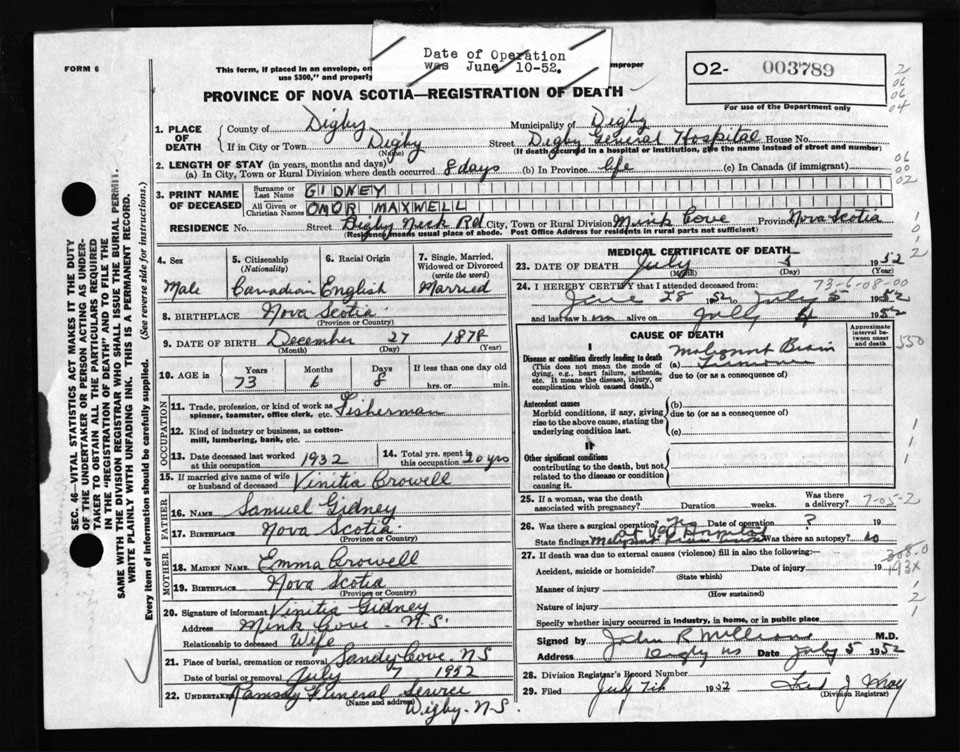 Date of Operation
was June 10-52.
FORM 6
This form, if placed in an envelope, on
improper
use $300," and properly
02- 003789
For use of the Department only
2
06
06
04
PROVINCE OF NOVA SCOTIA—REGISTRATION OF DEATH
1. PLACE OF DEATH
County of Digby Municipality of Digby
If in City or Town Digby Street Digby General Hospital House No.
(Name) (If death occurred in a hospital or institution, give the name instead of street and number)
2. LENGTH OF STAY (in years, months and days)
(a) In City, Town or Rural Division where death occurred 8 days (b) In Province life (c) In Canada (if immigrant)
06
00
02
3. PRINT NAME OF DECEASED
Surname or Last Name GIDNEY
All Given or Christian Names OMOR MAXWELL
RESIDENCE No. Street Digby Neck Rd City, Town or Rural Division Mink Cove Province Nova Scotia
(Residence means usual place of abode. Post Office Address for residents in rural parts not sufficient)
SEC. 46—VITAL STATISTICS ACT MAKES IT THE DUTY
OF THE UNDERTAKER OR PERSON ACTING AS UNDER-
TAKER TO OBTAIN ALL THE PARTICULARS REQUIRED
IN THE "REGISTRATION OF DEATH" AND TO FILE THE
SAME WITH THE DIVISION REGISTRAR WHO SHALL ISSUE THE BURIAL PERMIT.
WRITE PLAINLY WITH UNFADING INK. THIS IS A PERMANENT RECORD.
Every item of information should be carefully supplied. (See reverse side for instructions.)
4. Sex
Male
5. Citizenship
(Nationality)
Canadian
6. Racial Origin
English
7. Single, Married,
Widowed or Divorced
(write the word)
Married
8. BIRTHPLACE Nova Scotia
(Province or Country)
9. DATE OF BIRTH December 27 1878
(Month) (Day) (Year)
10. AGE in Years Months Days If less than one day old
73 6 8 hrs. or min.
OCCUPATION
11. Trade, profession, or kind of work as Fisherman
spinner, teamster, office clerk, etc.
12. Kind of industry or business, as cotton-
mill, lumbering, bank, etc.
13. Date deceased last worked
at this occupation 1932
14. Total yrs. spent in
this occupation 20 yrs
15. If married give name of wife
or husband of deceased Vinitia Crowell
FATHER
16. NAME Samuel Gidney
17. BIRTHPLACE Nova Scotia
(Province or Country)
MOTHER
18. MAIDEN NAME Emma Crowell
19. BIRTHPLACE Nova Scotia
(Province or Country)
20. Signature of informant Vinitia Gidney
Address Mink Cove - N.S.
Relationship to deceased Wife
21. Place of burial, cremation or removal Sandy Cove. NS
Date of burial or removal July 7 1952
22. UNDERTAKER Ramsay Funeral Service
(Name and address)
Digby - N-S.
MEDICAL CERTIFICATE OF DEATH
23. DATE OF DEATH July 5 1952
(Month) (Day) (Year)
24. I HEREBY CERTIFY that I attended deceased from:
73-6-08-00
June 28 1952 to July 5 1952
and last saw him alive on July 4 1952
CAUSE OF DEATH
Approximate
interval between
onset
and death
550
I
Disease or condition directly leading to death
(This does not mean the mode of
dying, e.g., heart failure, asthenia,
etc. It means the disease, injury, or
complication which caused death.)
Malignant Brain
(a) Tumor
due to (or as a consequence of)
Antecedent causes
Morbid conditions, if any, giving
rise to the above cause, stating the
underlying condition last.
(b)
due to (or as a consequence of)
(c)
II
Other significant conditions
contributing to the death, but not
related to the disease or condition
causing it.
25. If a woman, was the death
associated with pregnancy? Duration weeks. Was there
a delivery?
7-05-2
26. Was there a surgical operation? Yes Date of operation ? 19
at VG Hospital
State findings Malignant Was there an autopsy? no
27. If death was due to external causes (violence) fill in also the following:—
308.0
193x
Accident, suicide or homicide? Date of injury 19
(State which)
Manner of injury
(How sustained)
Nature of injury
Specify whether injury occurred in industry, in home, or in public place
Signed by John R M.D.
Address Digby NS Date July 5 1952
28. Division Registrar's Record Number
29. Filed July 7th 1952
(Division Registrar)